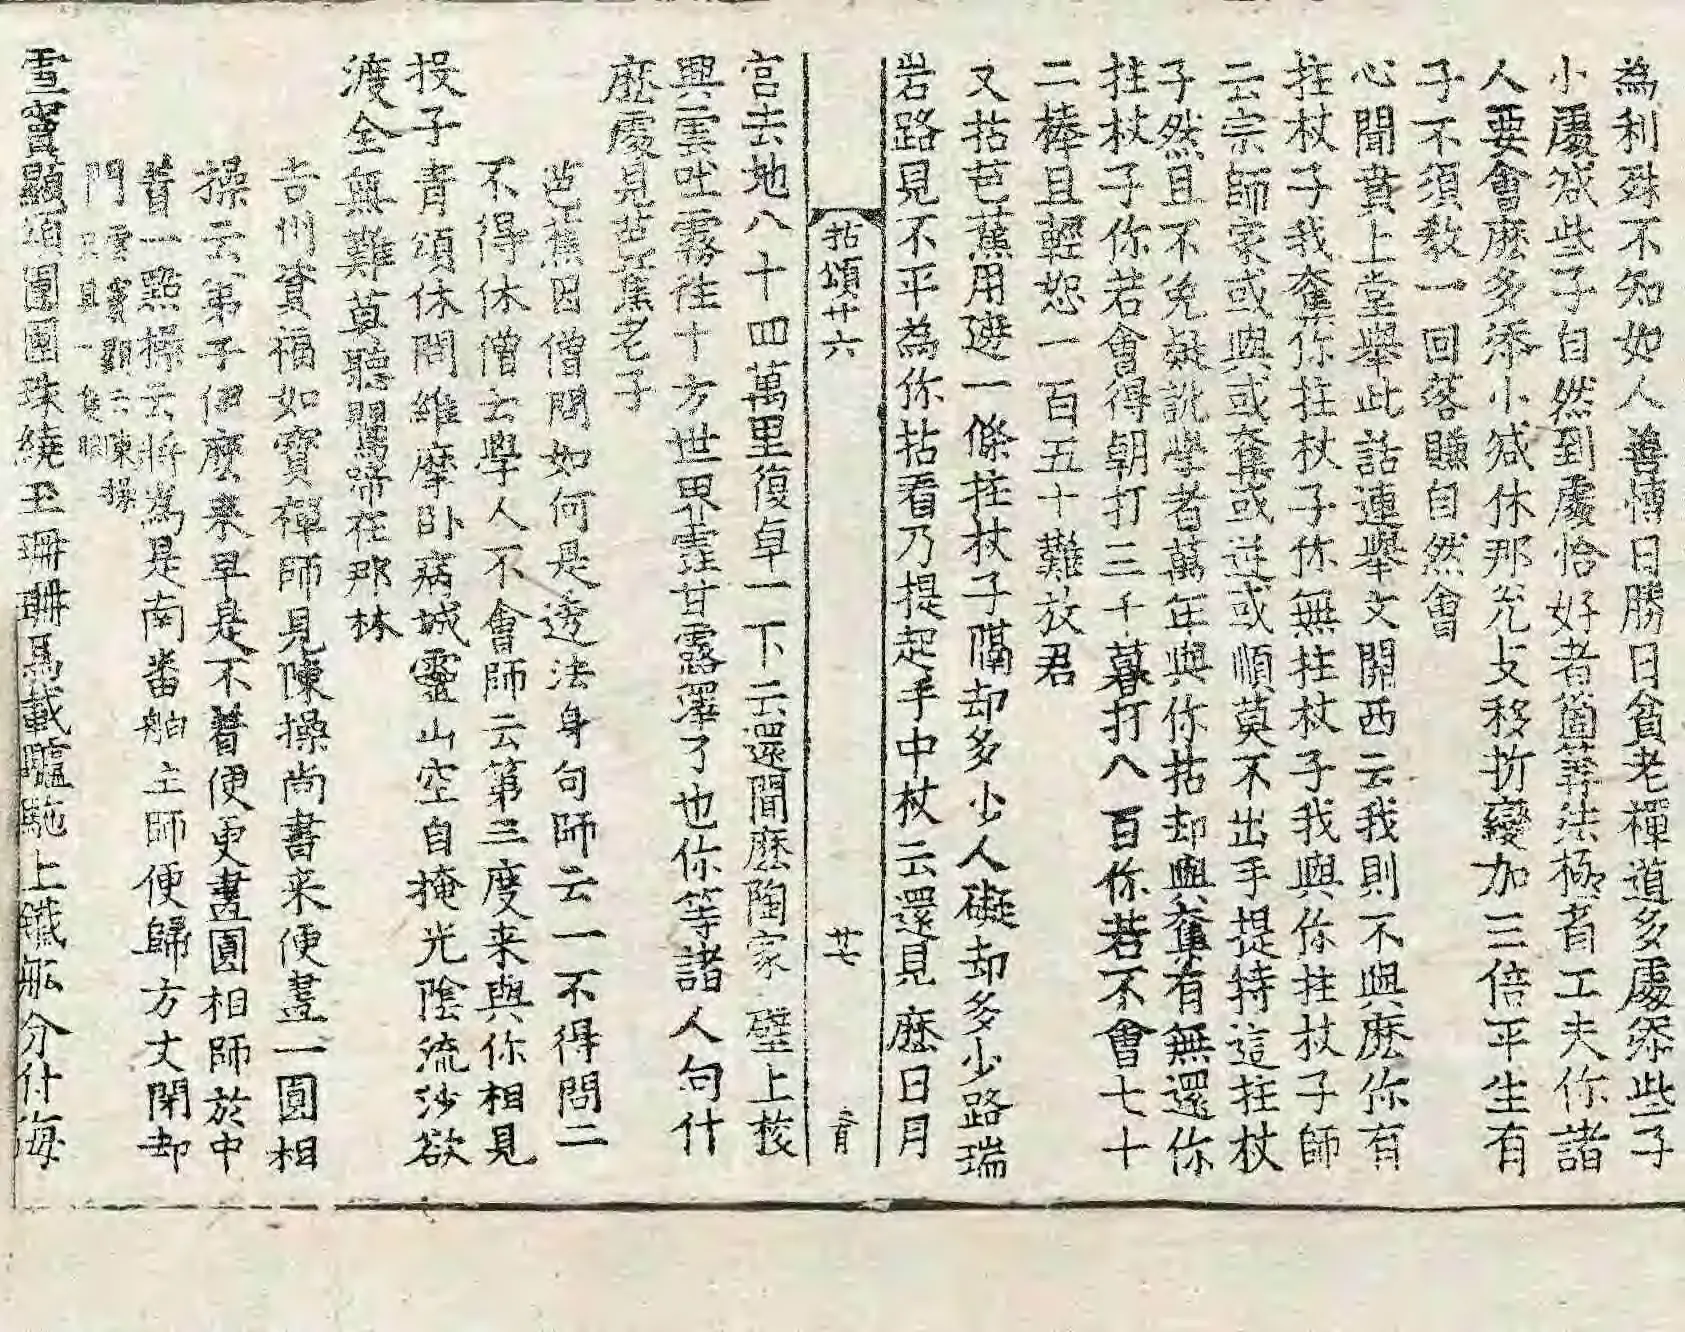 為利殊不知如人善愽日勝日貧老禪道多處添些子
小處减些子自然到處恰好者箇等法極者工夫你諸
人要會麽多添小减休那兊攴移折變加三倍平生有
子不須教一回落賺自然會
心聞賁上堂舉此話連舉文關西云我則不與麽你有
拄杖子我奪你拄杖子你無拄杖子我與你拄杖子師
云宗師家或與或奪或逆或順莫不出手提持這拄杖
子然且不免疑訛學者萬年與你拈却與奪有無還你
拄杖子你若會得朝打三千暮打八百你若不會七十
二棒且輕恕一百五十難放君
又拈芭蕉用遮一條拄杖子隔却多少人礙却多少路瑞
岩路見不平為你拈看乃提起手中杖云還見麽日月
拈頌廿六 廿七
宫去地八十四萬里復卓一下云還聞麽陶家壁上梭
興雲吐霧徃十方世界霔甘露澤了也你等諸人句什
麽處見芭蕉老子
芭蕉因僧問如何是透法身句師云一不得問二
不得休僧云學人不會師云第三度来與你相見
投子青頌休問維摩卧病城靈山空自掩光陰流沙欲
渡全無難莫聽鸎啼在那林
吉州資福如寶禪師見陳操尚書来便畫一圓相
操云弟子伊麽来早是不著便更畫圓相師於中
著一點操云將為是南番舶主師便歸方丈閉却
門雲竇顯云陳操只具一隻眼
雪竇顯頌團團珠繞玉珊珊馬載驢馳上鐵舡分付海